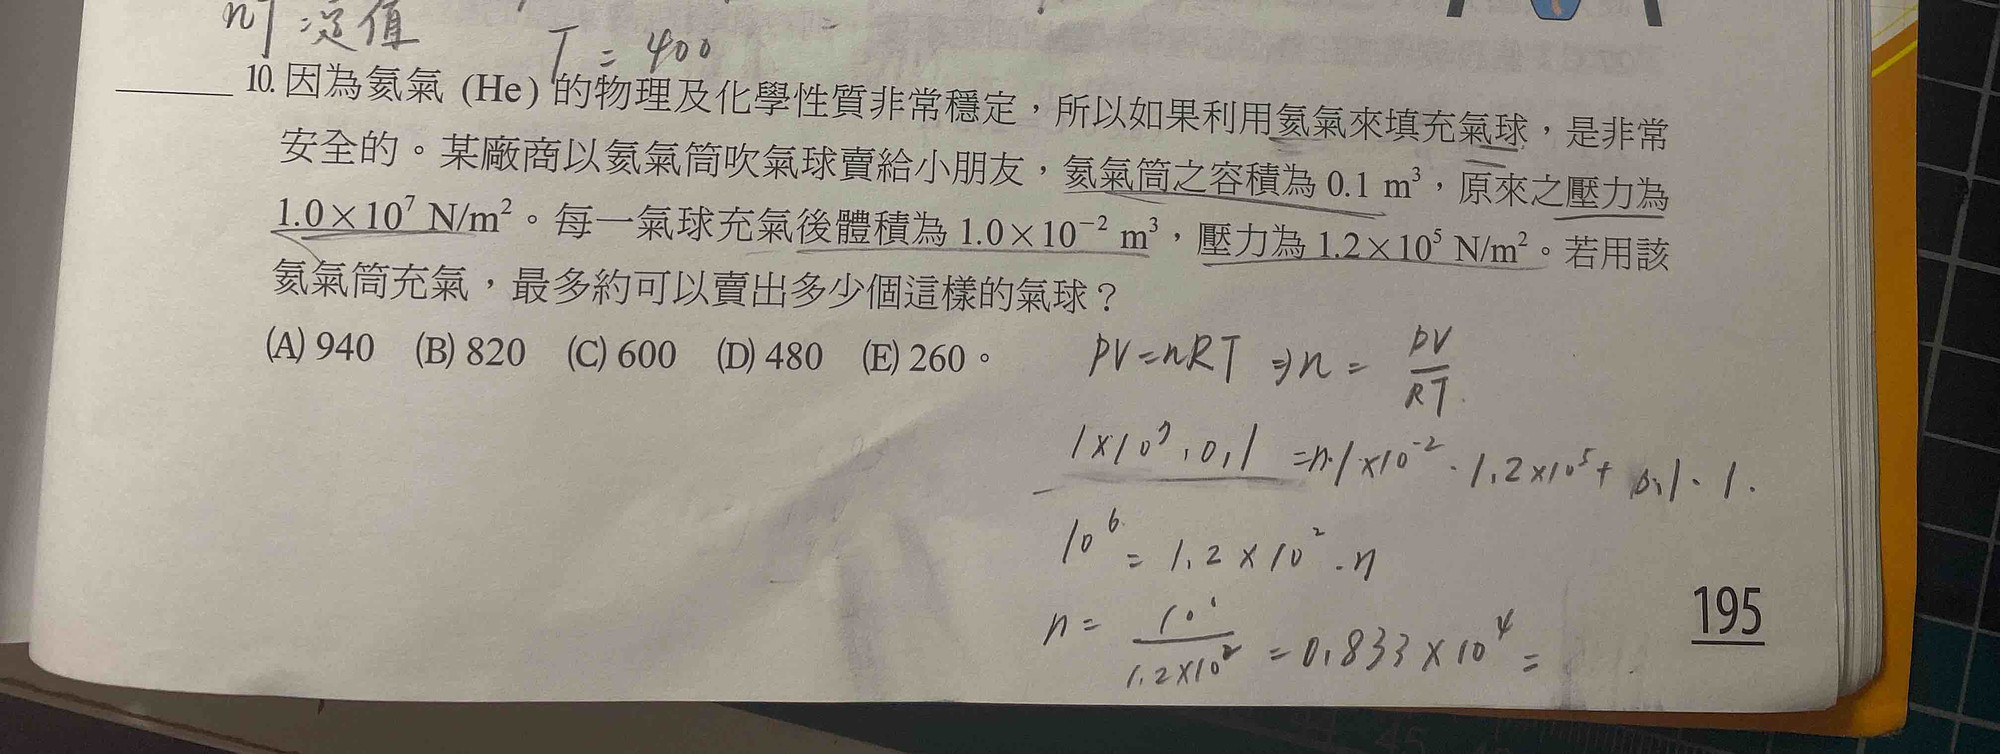 nT 定值
T = 400
10. 因為氦氣 (He) 的物理及化學性質非常穩定，所以如果利用氦氣來填充氣球，是非常
安全的。某廠商以氦氣筒吹氣球賣給小朋友，氦氣筒之容積為 0.1 m³，原來之壓力為
1.0×10⁷ N/m²。每一氣球充氣後體積為 1.0×10⁻² m³，壓力為 1.2×10⁵ N/m²。若用該
氦氣筒充氣，最多約可以賣出多少個這樣的氣球？
(A) 940 (B) 820 (C) 600 (D) 480 (E) 260。
PV=nRT ⇒ n = PV/RT
1×10⁷ · 0.1 = n·1×10⁻² · 1.2×10⁵ + 0.1 · 1.
10⁶ = 1.2×10² · n
n = 10⁶/1.2×10² = 0.833×10⁴ =
195